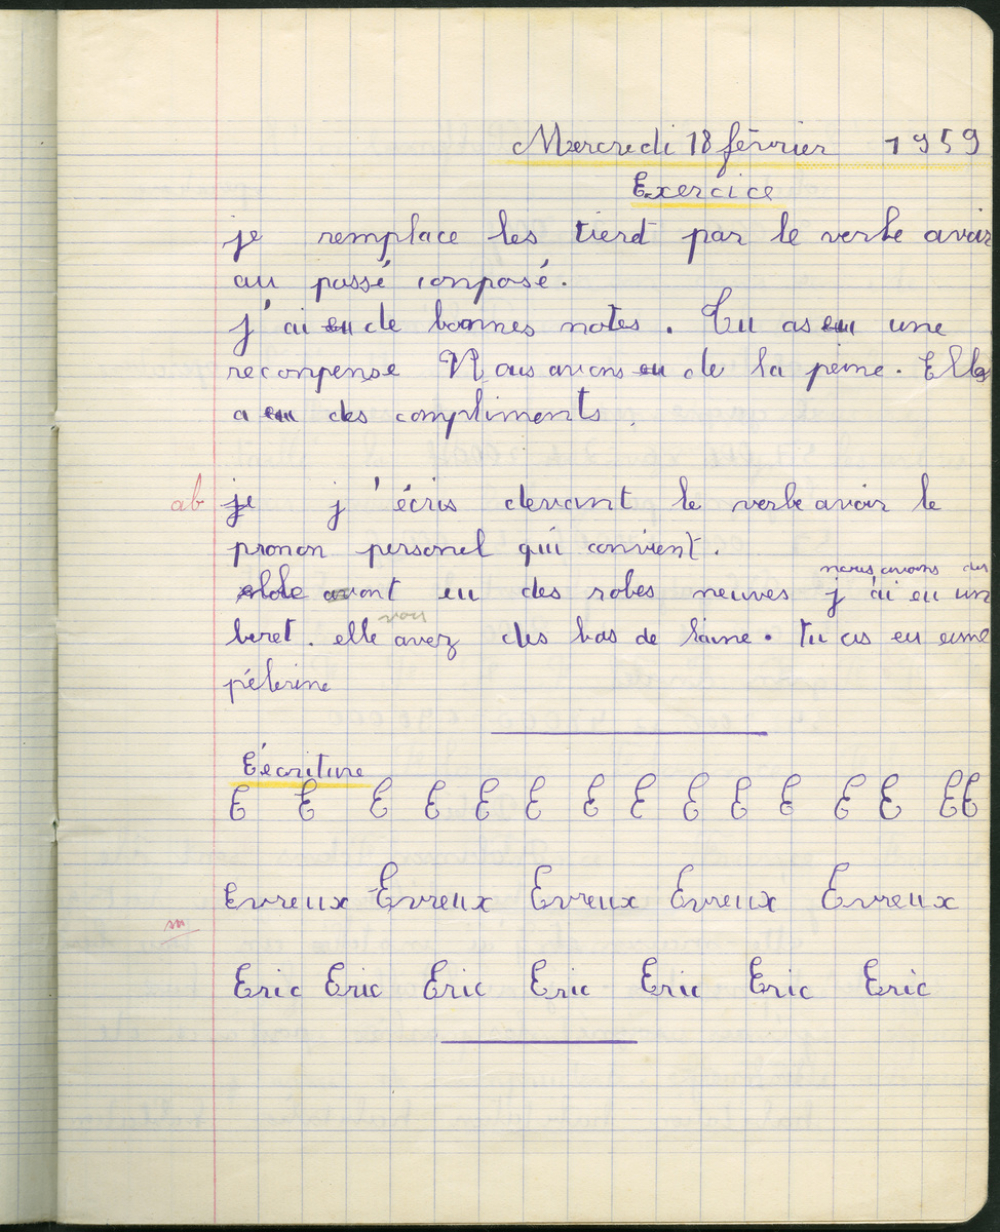 Mercredi 18 février 1959
Exercice
je remplace les tiert par le verbe avoir
au passé composé.
j'ai eu de bonnes notes. Tu as eu une
recompense Nous avons eu de la peine. Elle
a eu des compliments.
ab je j'écris devant le verbe avoir le
pronon personel qui convient.
nous avons du
avont eu des robes neuves j'ai eu un
vous
beret. elle avez des bas de laine. Tu as eu une
pélerine
Eécriture
E E E E E E E E E E E E E EE
Evreux Evreux Evreux Evreux Evreux
Eric Eric Eric Eric Eric Eric Eric